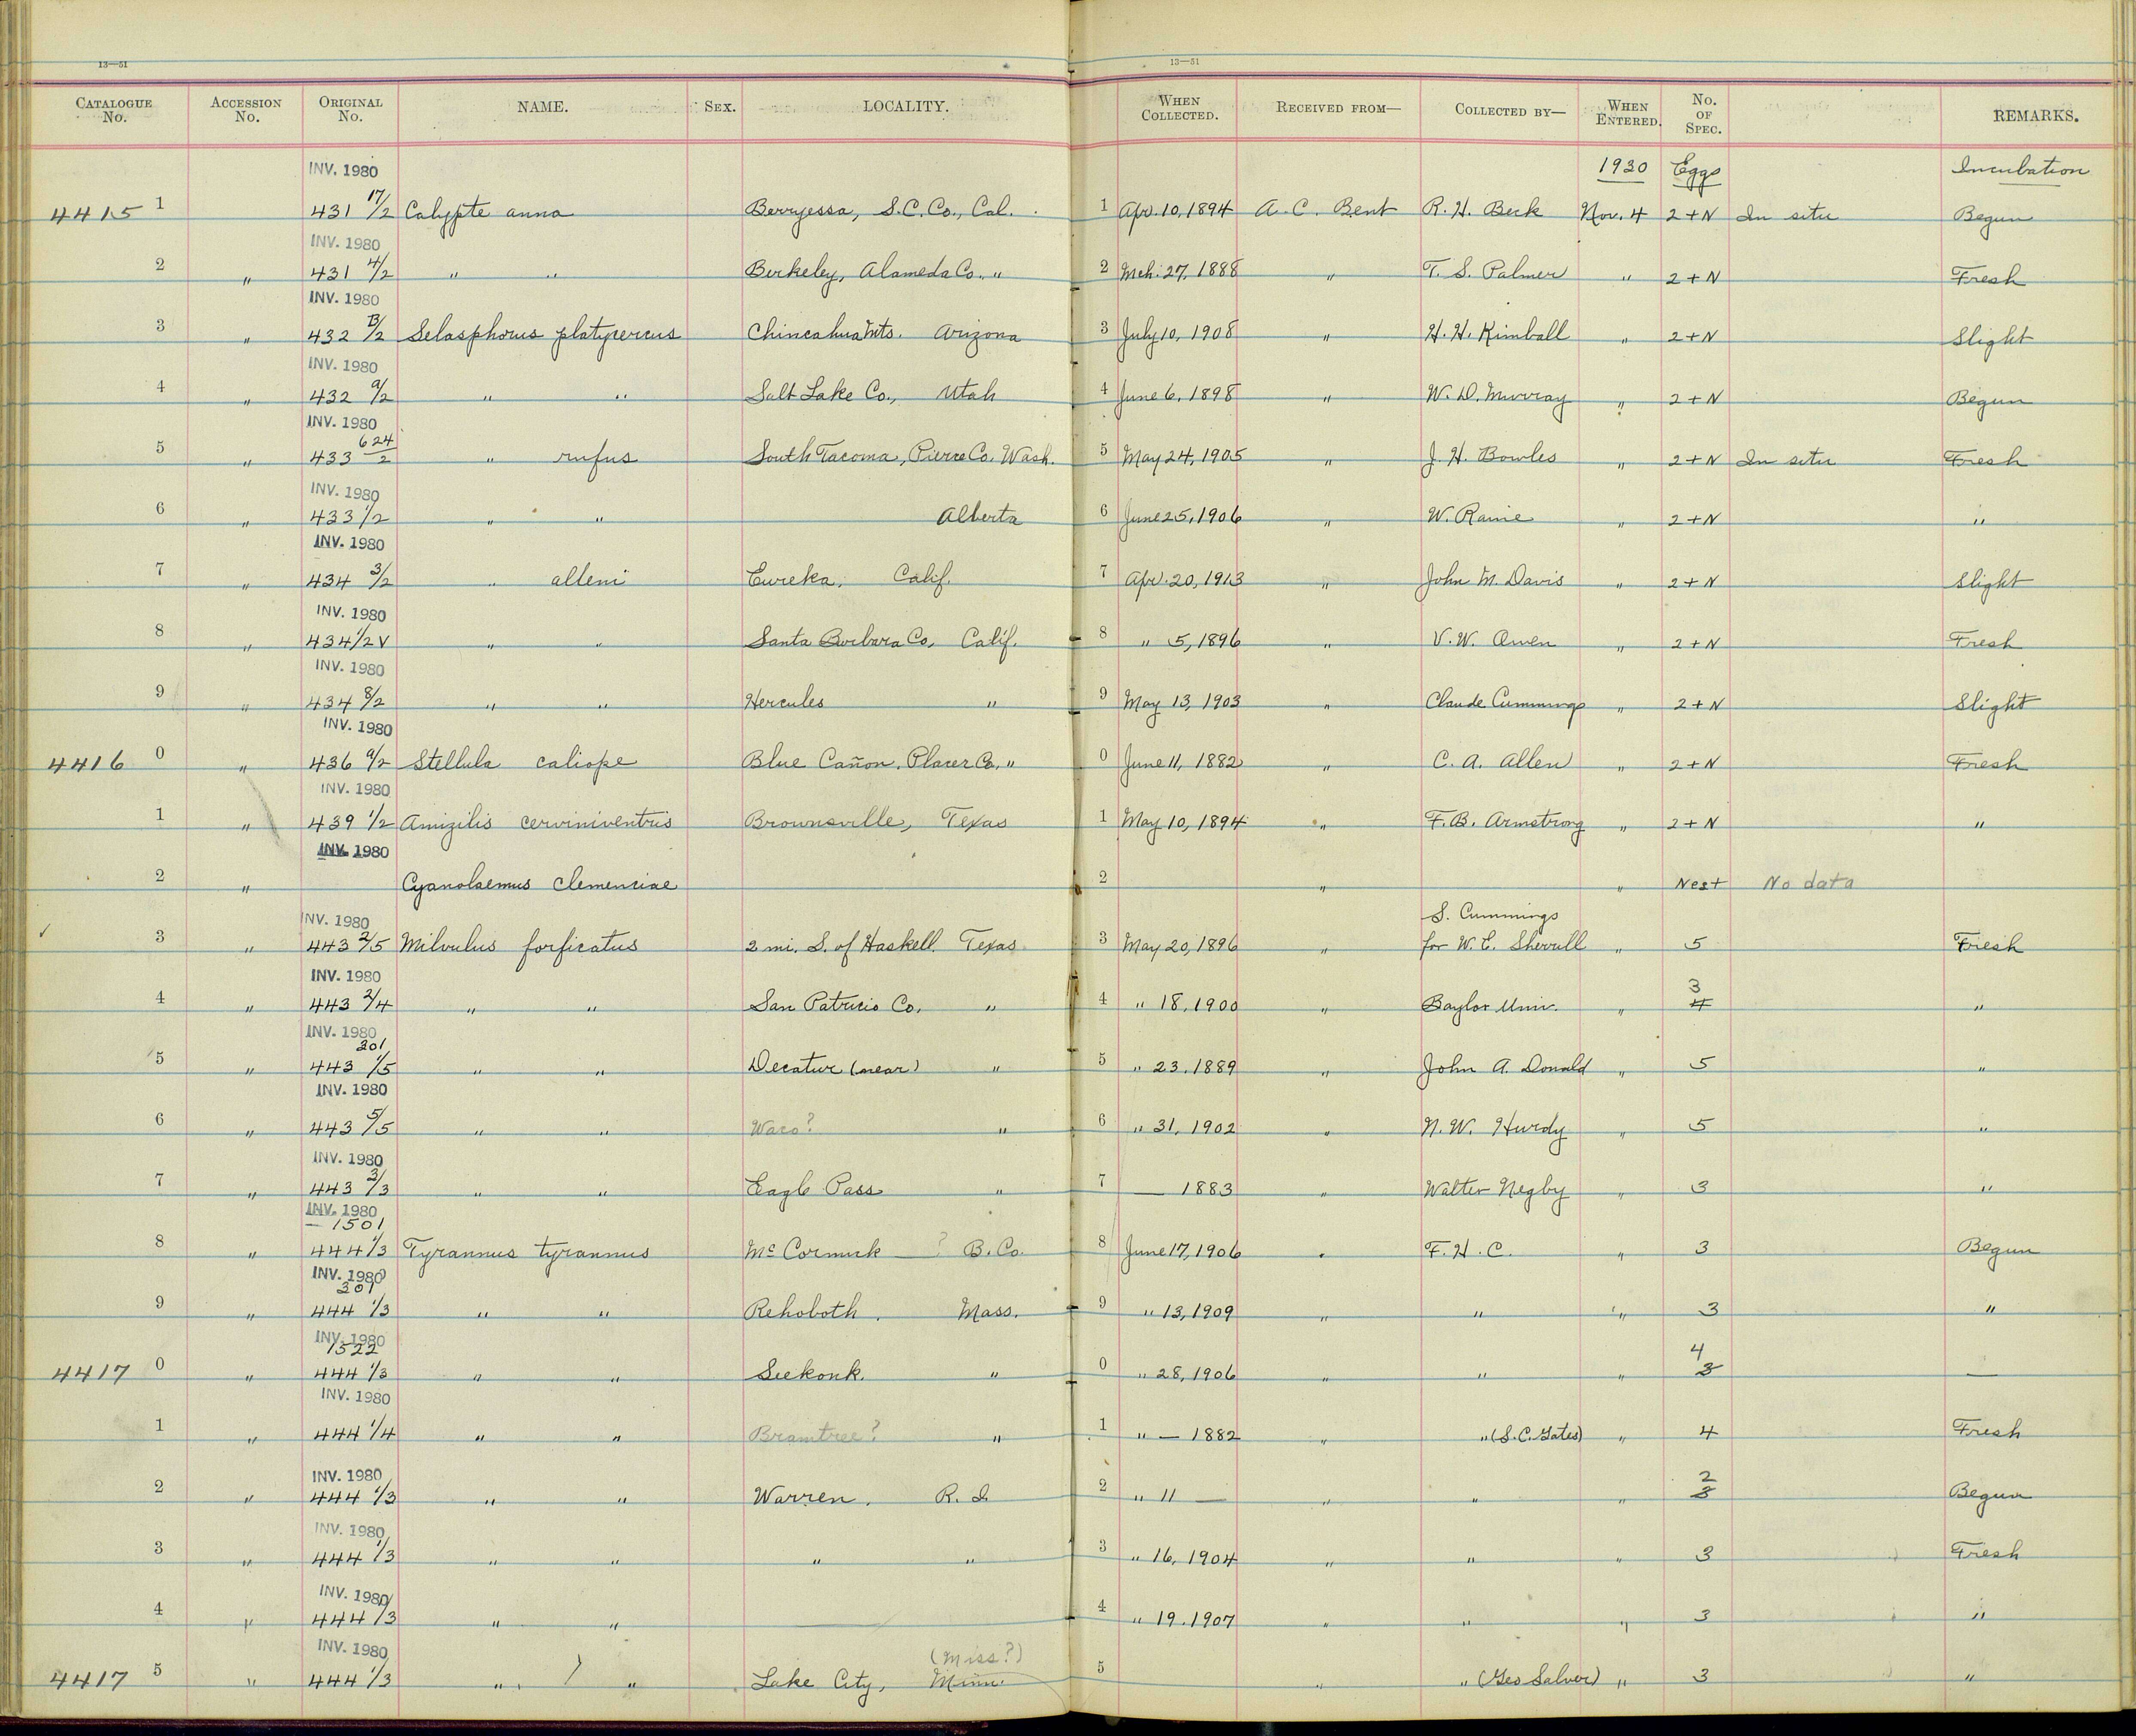 13—51 13—51
CATALOGUE No. ACCESSION No. ORIGINAL No. NAME. SEX. LOCALITY. WHEN COLLECTED. RECEIVED FROM— COLLECTED BY— WHEN ENTERED. No. OF SPEC. REMARKS.
INV. 1980 1930 Eggs Incubation
4415 1 431 17/2 Calypte anna Berryessa, S.C. Co., Cal. 1 Apr. 10, 1894 A. C. Bent R. H. Beck Nov. 4 2 + N In situ Begun
INV. 1980
2 " 431 4/2 " " Berkeley, Alameda Co., " 2 Mch. 27, 1888 " T. S. Palmer " 2 + N Fresh
INV. 1980
3 " 432 13/2 Selasphorus platycercus Chincahua Mts. Arizona 3 July 10, 1908 " H. H. Kimball " 2 + N Slight
INV. 1980
4 " 432 9/2 " " Salt Lake Co., Utah 4 June 6, 1898 " W. D. Murray " 2 + N Begun
INV. 1980
5 " 433 624/2 " rufus South Tacoma, Pierre Co. Wash. 5 May 24, 1905 " J. H. Bowles " 2 + N In situ Fresh
INV. 1980
6 " 433 1/2 " " Alberta 6 June 25, 1906 " W. Raine " 2 + N "
INV. 1980
7 " 434 3/2 " alleni Eureka, Calif. 7 Apr. 20, 1913 " John M. Davis " 2 + N Slight
INV. 1980
8 " 434 1/2 V " " Santa Barbara Co, Calif. 8 " 5, 1896 " V. W. Owen " 2 + N Fresh
INV. 1980
9 " 434 8/2 " " Hercules " 9 May 13, 1903 " Claude Cummings " 2 + N Slight
INV. 1980
4416 0 " 436 9/2 Stellula caliope Blue Cañon, Placer Co., " 0 June 11, 1882 " C. A. Allen " 2 + N Fresh
INV. 1980
1 " 439 1/2 Amizilis cerviniventris Brownsville, Texas 1 May 10, 1894 " F. B. Armstrong " 2 + N "
INV. 1980
2 " Cyanolaemus clemenciae 2 " " Nest No data
INV. 1980 S. Cummings
3 " 443 2/5 Milvulus forficatus 2 mi. S. of Haskell Texas 3 May 20, 1896 " for W. E. Sherrill " 5 Fresh
INV. 1980 3
4 " 443 2/4 " " San Patricio Co. " 4 " 18, 1900 " Baylor Univ. " 4 "
INV. 1980
201
5 " 443 1/5 " " Decatur (near) " 5 " 23, 1889 " John A. Donald " 5 "
INV. 1980
6 " 443 5/5 " " Waco? " 6 " 31, 1902 " N. W. Hurdy " 5 "
INV. 1980
7 " 443 3/3 " " Eagle Pass " 7 — 1883 " Walter Negby " 3 "
INV. 1980
— 1501
8 " 444 1/3 Tyrannus tyrannus Mc Cormick — ? B. Co. 8 June 17, 1906 " F. H. C. " 3 Begun
INV. 1980
301
9 " 444 1/3 " " Rehoboth. Mass. 9 " 13, 1909 " " " 3 "
INV. 1980
1522 4
4417 0 " 444 1/3 " " Seekonk. " 0 " 28, 1906 " " " 3 —
INV. 1980
1 " 444 1/4 " " Bramtree? " 1 " — 1882 " " (S. C. Gates) " 4 Fresh
INV. 1980 2
2 " 444 1/3 " " Warren. R. I. 2 " 11 — " " " 3 Begun
INV. 1980
3 " 444 1/3 " " " " 3 " 16, 1904 " " " 3 Fresh
INV. 1980
4 " 444 1/3 " " 4 " 19, 1907 " " " 3 "
INV. 1980 (Miss?)
4417 5 " 444 1/3 " " Lake City, Minn. 5 " " (Geo Salver) " 3 "